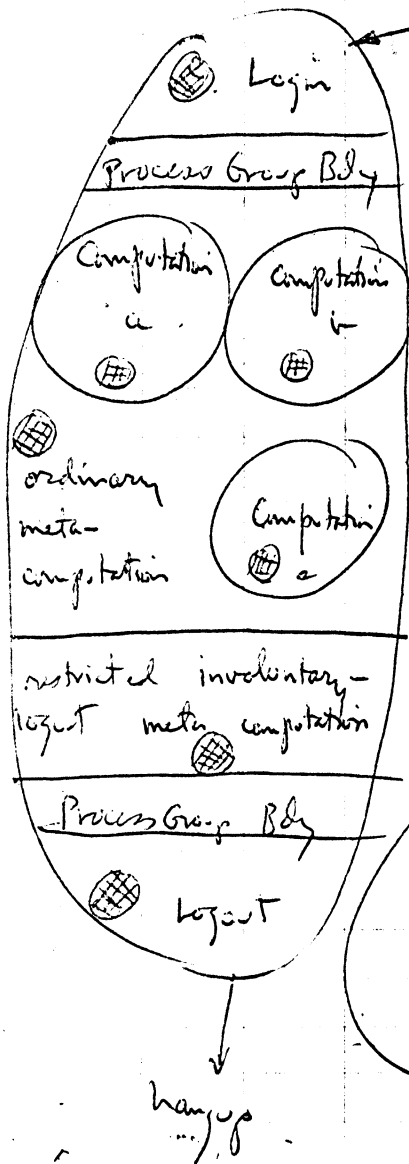 Login
Process Group Bdy
Computation
a
Computation
b
ordinary
meta-
computation
Computation
c
restricted involuntary-
logout meta computation
Process Group Bdy
Logout
hangup